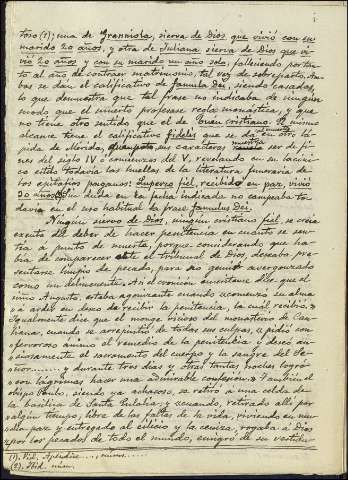 toso (1); una de Granniola, sierva de Dios que vivió con su
marido 20 años, y otra de Juliana sierva de Dios que vi-
vió 20 años y con su marido un año solo, falleciendo por tan-
to al año de contraer matrimonio, tal vez de sobreparto. Am-
bas se dan el calificativo de famula Dei, siendo casadas,
lo que demuestra que tal frase no indicaba de ningun
modo que el muerto profesase regla monástica, y que
no tiene otro sentido que el de buen cristiano. El mismo
alcance tiene el calificativo fidelis que se da en otra lá-
pida de Mérida, que por sus caracteres muestra ser de fi-
nes del siglo IV ó comienzos del V, revelando en su lacóni-
co estilo todavia las huellas de la literatura funeraria de
los epitafios paganos: Superja fiel, recibido en paz, vivió
20 años. Sin duda en la fecha indicada no campeaba to-
davia el uso habitual de frase famulus Dei.
Ningun siervo de Dios, ningun cristiano fiel, se creia
exento del deber de hacer penitencia en cuanto se sen-
tía á punto de muerte, porque considerando que ha-
bía de comparecer ante el tribunal de Dios, deseaba pre-
sentarse limpio de pecado, para no gemir avergonzado
como un delincuente. Así el cronicon emeritense dice que el
niño Augusto, estaba agonizante cuando "comenzó su alma
"a arder en deseo de recibir la penitencia, la cual recibió."
Igualmente dice que el monge vicioso del monasterio de Cau-
liana, cuando se arrepintió de todas sus culpas, "pidió con
"fervoroso ánimo el remedio de la penitencia y deseó an-
"siosamente el sacramento del cuerpo y la sangre del Se-
"ñor........ y durante tres dias y otras tantas noches logró
"con lágrimas hacer una admirable confesion." Tambien el
obispo Paulo, siendo ya achacoso, se retiró á una celda de
la basílica de Santa Eulalia; y "cuando, retirado allí por
"algun tiempo, libre de las faltas de la vida, viviendo en
"la paz y entregado al cilicio y la ceniza, rogaba á Dios
"por los pecados de todo el mundo, emigró de su
(1). Vid. Apéndice ...., núms. ....
(2). Ibid. núm.